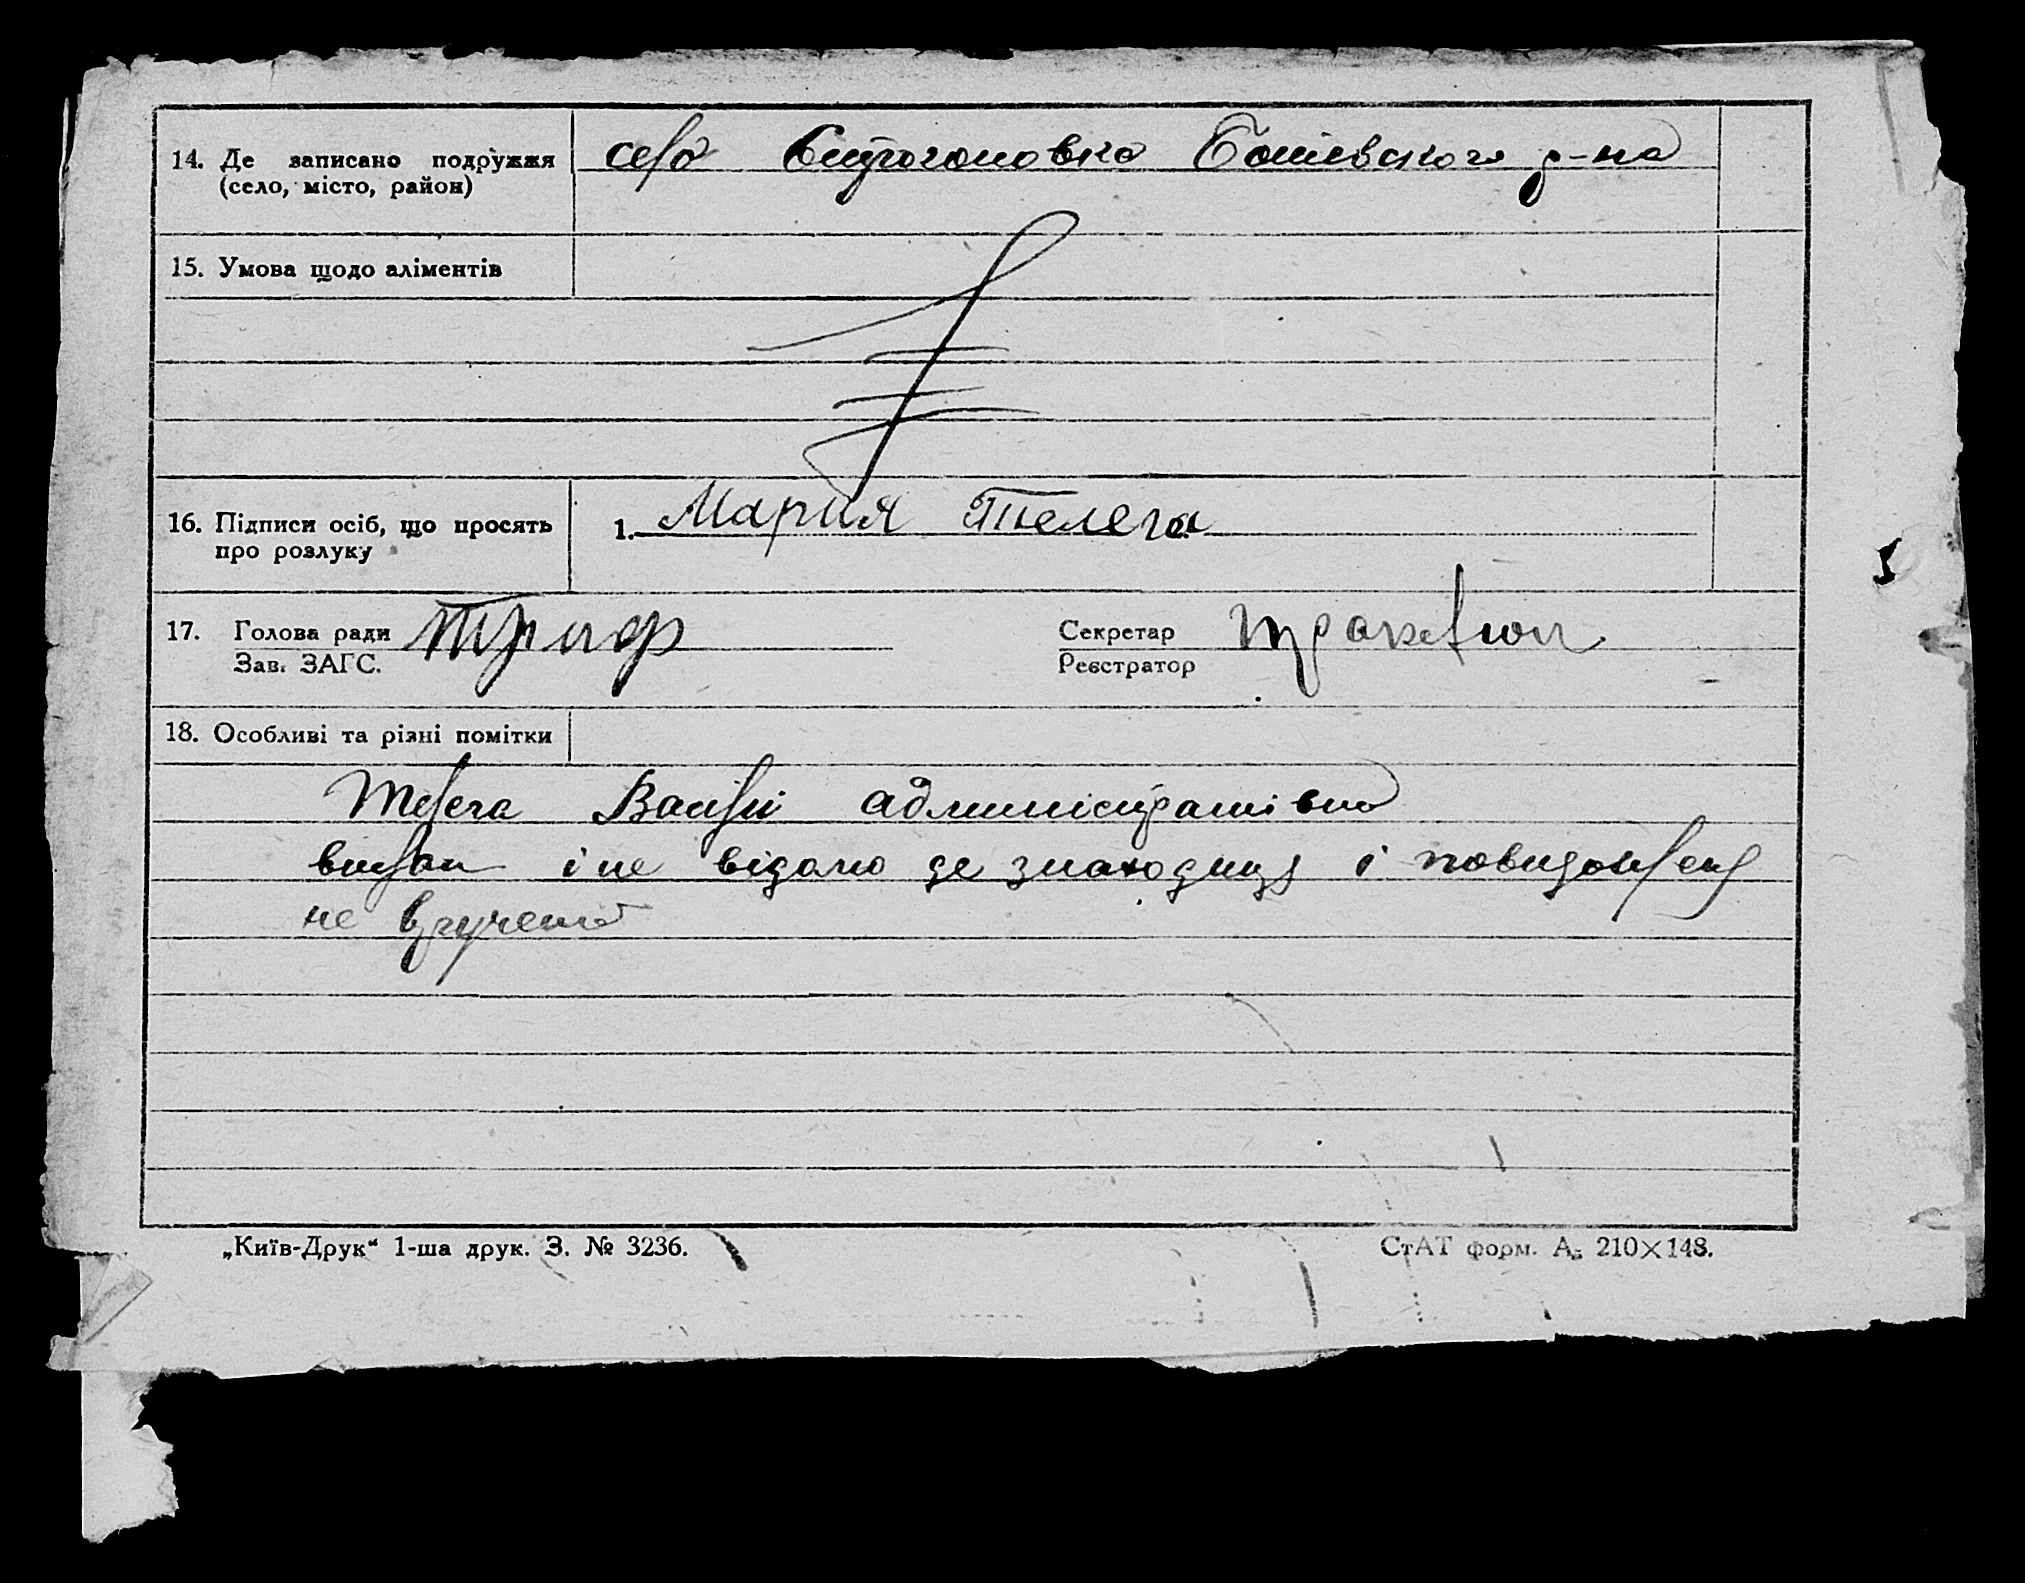 14. Де записано подружжя
(село, місто, район)
село Боткевского р-на
15. Умова щодо аліментів
16. Підписи осіб, що просять
про розлуку
1. Мария Телега
17. Голова ради
Зав. ЗАГС.
Секретар
Реєстратор
18. Особливі та різні помітки
Телега Василь адміністративно
вислан і не відомо де знаходиця і повидомленя
не вручено
„Київ-Друк“ 1-ша друк. З. № 3236.
СтАТ форм. А₅ 210×148.